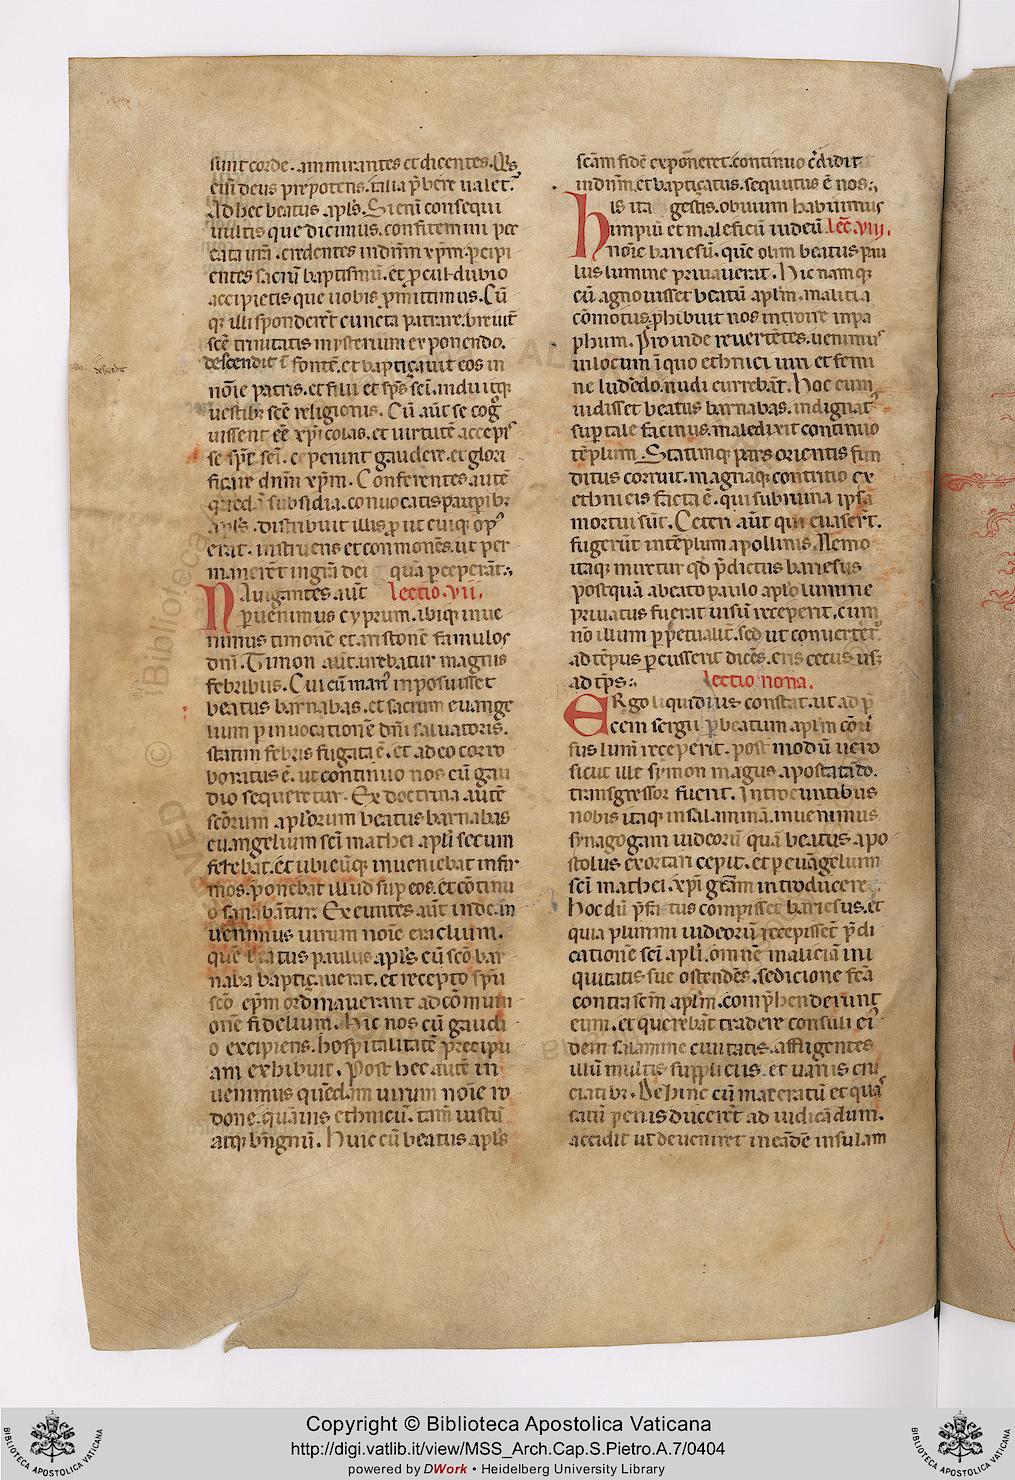 sunt corde. ammirantes et dicentes. Q̄s
eni deus p̄repotens. talia p̄bere ualet.
Ad hec beatus apl̄s. Si enī consequi
uultis que dicimus. confitemini pec
cata ur̄a. credentes in dn̄m xp̄m. p̄cipi
entes sacrū baptismū. et ꝓcul dubio
accipietis que uobis ꝓmittimus. Cū
qꝫ illi spōnderēt cuncta patrare. breuit̄
scē trinitatis mysterium exponendo.
descendit ī fontē. et baptiçauit eos in
noīe patris. et filii et sp̄s scī. induitqꝫ
uestibꝫ scē religionis. Cū aūt se cog
uissent eē xp̄icolas. et uirtutē accepis
se sp̄s scī. ceperunt gaudere. et glori
ficare dn̄m xp̄m. Conferentes autē
quedā subsidia. conuocatis paupibꝫ
apl̄s. distribuit illis. ꝓut cuiqꝫ opꝰ
erat. instruens et conmonēs. ut per
manerēt in gr̄a dei qua ꝑceperāt.
Nauigantes aūt lectio .vii.
ꝑuenimus cyprum. ibiqꝫ inue
nimus timonē et aristonē famulos
dn̄i. Timon aūt. urebatur magnis
febribus. Cui cū manꝰ inposuisset
beatus barnabas. et sacrum euange
lium ꝑ inuocationē dn̄i saluatoris.
statim febris fugata ē. et adeo corro
boratus ē. ut continuo nos cū gau
dio sequeretur. Ex doctrina autē
scōrum apl̄orum beatus barnabas
euangelium scī mathei apl̄i secum
ferebat. et ubicūqꝫ inueniebat infir
mos. ponebat illud sup eos. et cōtinu
o sanabāntur. Exeuntes aūt inde. in
uenimus uirum noīe eraclium.
quē beatus paulus apl̄s cū scō bar
naba baptiçauerat. et recepto sp̄u
scō. ep̄m ordinauerant ad cōmuni
onē fidelium. Hic nos cū gaudi
o excipiens. hospitalitatē p̄recipu
am exhibuit. Post hec autē in
uenimus quēdam uirum noīe ro
done. quāuis ethnicū. tam̄ iustū
atqꝫ bn̄gnū. Huic cū beatus apl̄s
scām fidē exponeret. continuo c̄didit
in dn̄m. et baptiçatus. sequutus ē nos.
His ita gestis. obuium habuimus
impiū et maleficū iudeū lec̄. viii.
noīe bariesū. quē olim beatus pau
lus lumine priuauerat. Hic namqꝫ
cū agnouisset beatū apl̄m. malitia
cōmotus. ꝓhibuit nos introire in pa
phum. Proinde reuertētes. uenimus
in locum ī quo ethnici uiri et femi
ne ludēdo. nudi currebāt. Hoc cum
uidisset beatus barnabas. indignatꝰ
sup tale facinus. maledixit continuo
tēplum. Statimqꝫ pars orientis fun
ditus corruit. magnaqꝫ contritio ex
ethnicis facta ē. qui sub ruina ipsa
mortui sūt. Ceteri aūt qui euaserūt.
fugerūt in tēplum apollinis. Nemo
itaqꝫ miretur qd̄ p̄dictus bariesus
postquā a beato paulo aplo lumine
priuatus fuerat uisū receperit. cum
nō illum ꝑpetualit̄. sed ut conuerterēt.
ad tēpus ꝑcusserit dicēs. eris cecus usqꝫ
ad tp̄s. lectio nona.
ERgo liquidius constat. ut ad p̄
cem sergii p̄ beatum aplm cōri
sus lum̄ receperit. post modū uero
sicut ille symon magus apostatādo.
transgressor fuerit. Introeuntibus
nobis itaqꝫ in salaminā. inuenimus
synagogam iudeorū quā beatus apo
stolus exortari cepit. et ꝑ euāgelium
scī mathei. xp̄i gr̄am introducere.
Hoc dū p̄fatus compisset bariesus. et
quia plurimi iudeorū recepissēt p̄di
cationē scī apl̄i. omnē maliciā ini
quitatis sue ostendēs. sedicione fcā
contra scm̄ apl̄m. comp̄henderunt
eum. et querebāt tradere consuli ei
dem salamine ciuitatis. affligentes
illū multis suppliciis. et uariis cru
ciatibꝫ. Dehinc cū maceratū et quas
satū penis ducerēt ad iudicādum.
accidit ut deueniret in eādē insulam
Copyright © Biblioteca Apostolica Vaticana
http://digi.vatlib.it/view/MSS_Arch.Cap.S.Pietro.A.7/0404
powered by DWork • Heidelberg University Library